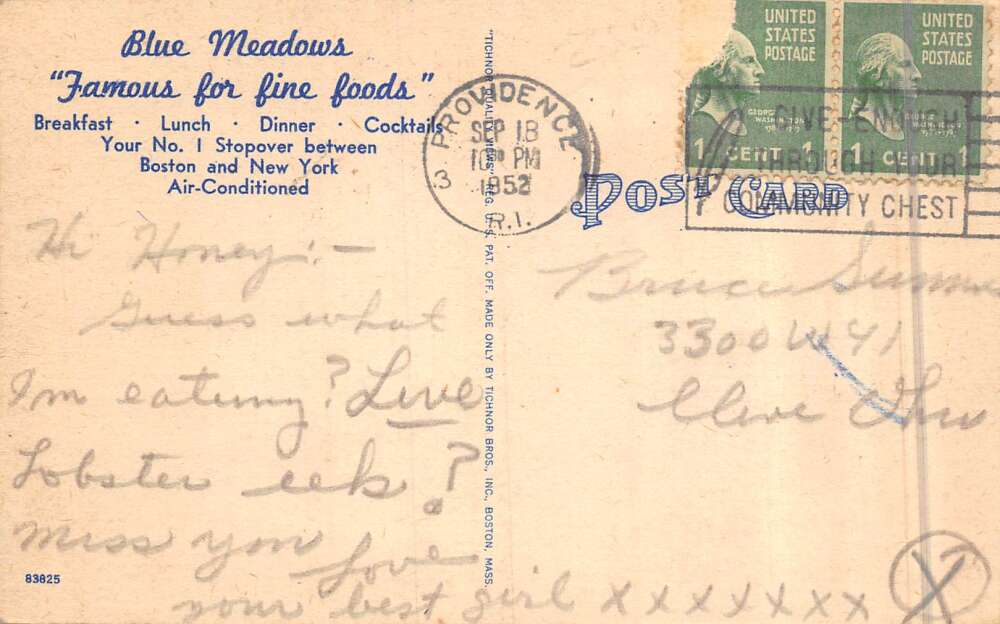 Blue Meadows
"Famous for fine foods"
Breakfast · Lunch · Dinner · Cocktails
Your No. 1 Stopover between
Boston and New York
Air-Conditioned
Hi Honey:-
Guess what
I'm eating? Live
Lobster eek?
Miss you
Love
your best girl x x x x x x x X
83825
"TICHNOR QUALITY VIEWS" REG. U.S. PAT. OFF. MADE ONLY BY TICHNOR BROS., INC., BOSTON, MASS.
PROVIDENCE
SEP 18
PM
1952
3
R.I.
UNITED
STATES
POSTAGE
1 CENT 1
UNITED
STATES
POSTAGE
GEORGE
WASHINGTON
1 CENT 1
GIVE ENOUGH
THROUGH YOUR
COMMUNITY CHEST
POST CARD
Bruce
3300 W 41
Cleve Ohio